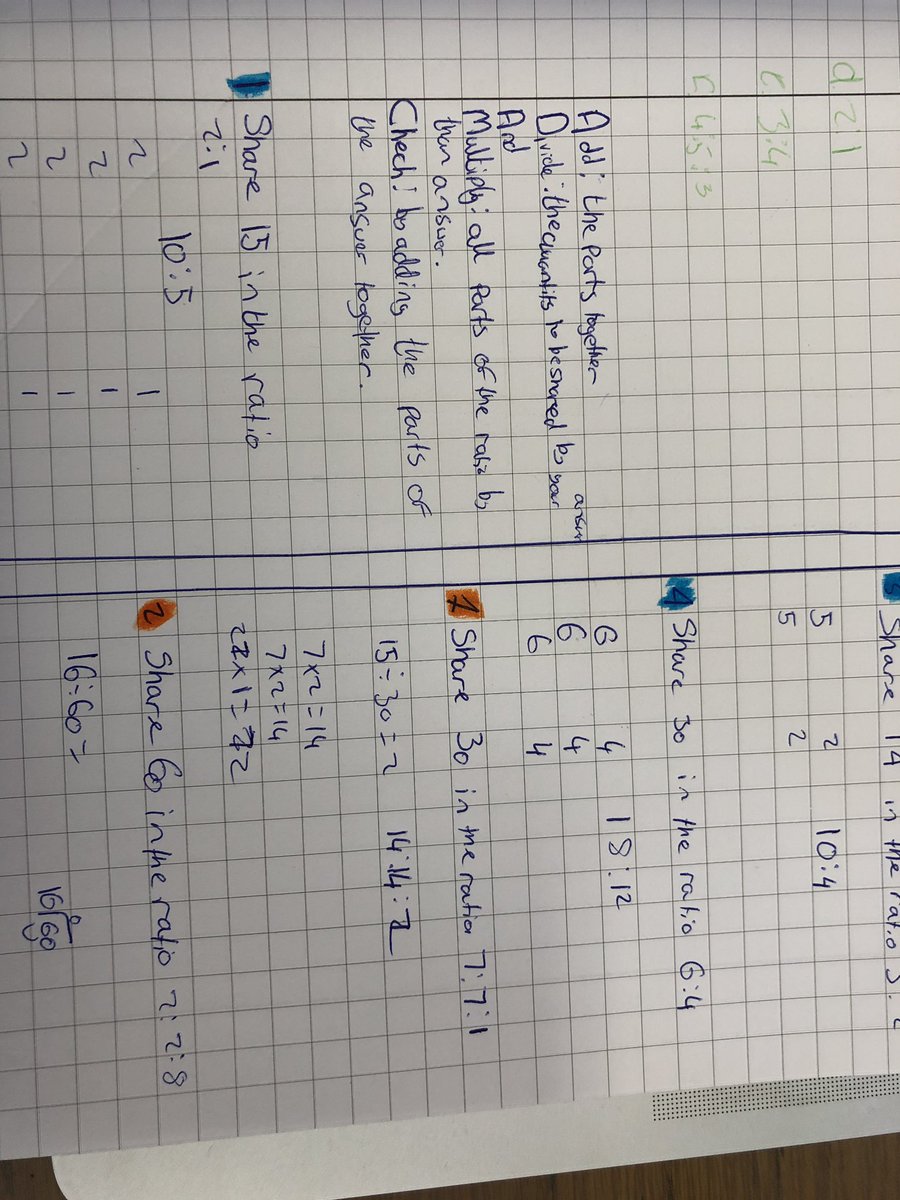 d. 2:1
E. 3:4
5. 4:5:3
Add: the Parts together
answer
Divide: the quantity to be shared by your
And
Multiply: all Parts of the ratio by
than answer.
Check: by adding the parts of
the answer together.
1 Share 15 in the ratio
2:1
10:5
2 1
2 1
2 1
2 1
3 Share 14 in the ratio 5:2
5 2 10:4
5 2
4 Share 30 in the ratio 6:4
6 4 18:12
6 4
6 4
1 Share 30 in the ratio 7:7:1
15÷30=2 14:14:2
7x2=14
7x2=14
2x1=2
2 Share 60 in the ratio 7:2:8
16÷60=
0
16 60